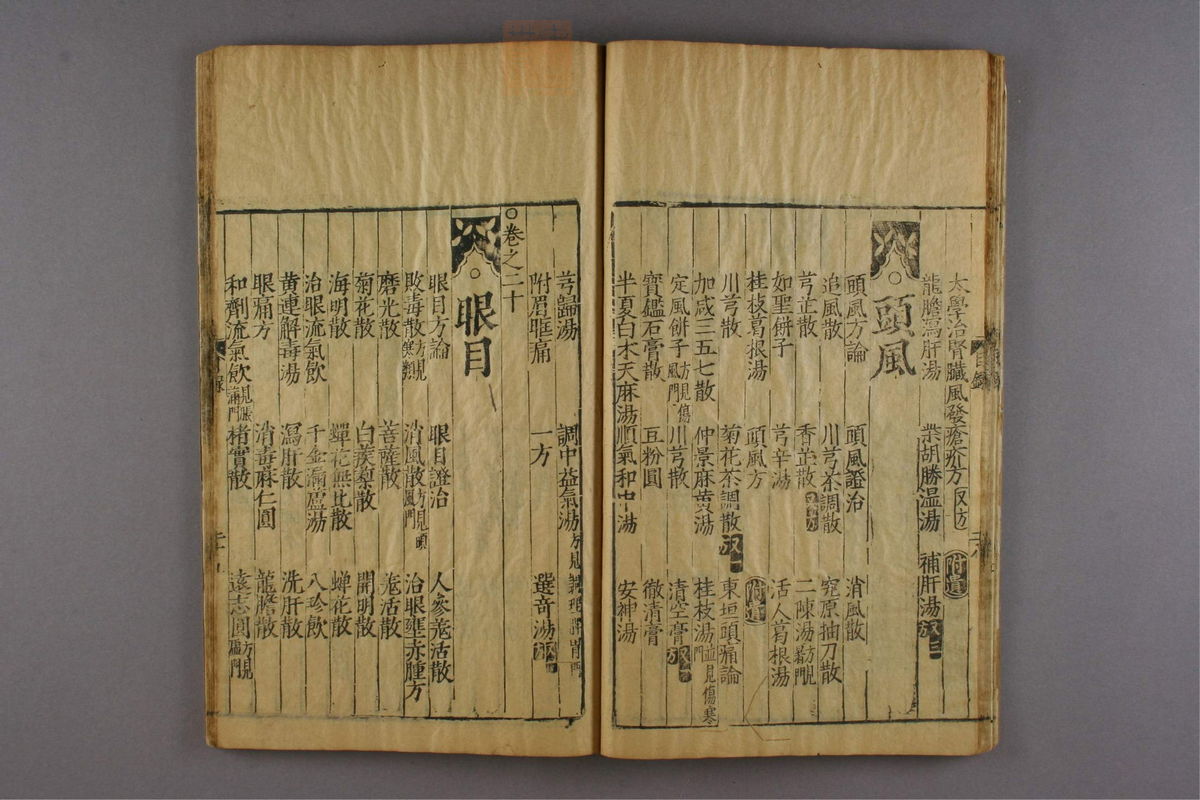 太學治腎臟風發瘡疥方 附遺
龍膽瀉肝湯 柴胡勝溫湯 補肝湯 三
頭風
頭風方論 頭風證治 消風散
追風散 川芎茶調散 究原抽刀散
芎芷散 香芷散 二陳湯
如聖餅子 芎辛湯 活人葛根湯
桂枝葛根湯 頭風方 附遺
川芎散 菊花茶調散 東垣頭痛論
加减三五七散 仲景麻黄湯 桂枝湯並見傷寒門
定風餅子方見傷風門 川芎散 清空膏
寶鑑石膏散 互粉圓 徹清膏
半夏白术天麻湯 順氣和中湯 安神湯
目錄
芎歸湯 調中益氣湯方見 脾胃門
附眉眶痛 一方 選奇湯
卷之二十
眼目
眼目方論 眼目證治 人參羌活散
敗毒散方見寒類 消風散方見頭風門 治眼壅赤腫方
磨光散 菩薩散 羌活散
菊花散 白蒺藜散 開明散
海明散 蟬花無比散 蟬花散
治眼流氣飲 千金漏蘆湯 八珍飲
黄連解毒湯 瀉肝散 洗肝散
眼痛方 消毒麻仁圓 龍膽散
和劑流氣飲見脹滿門 楮實散 遠志圓方見